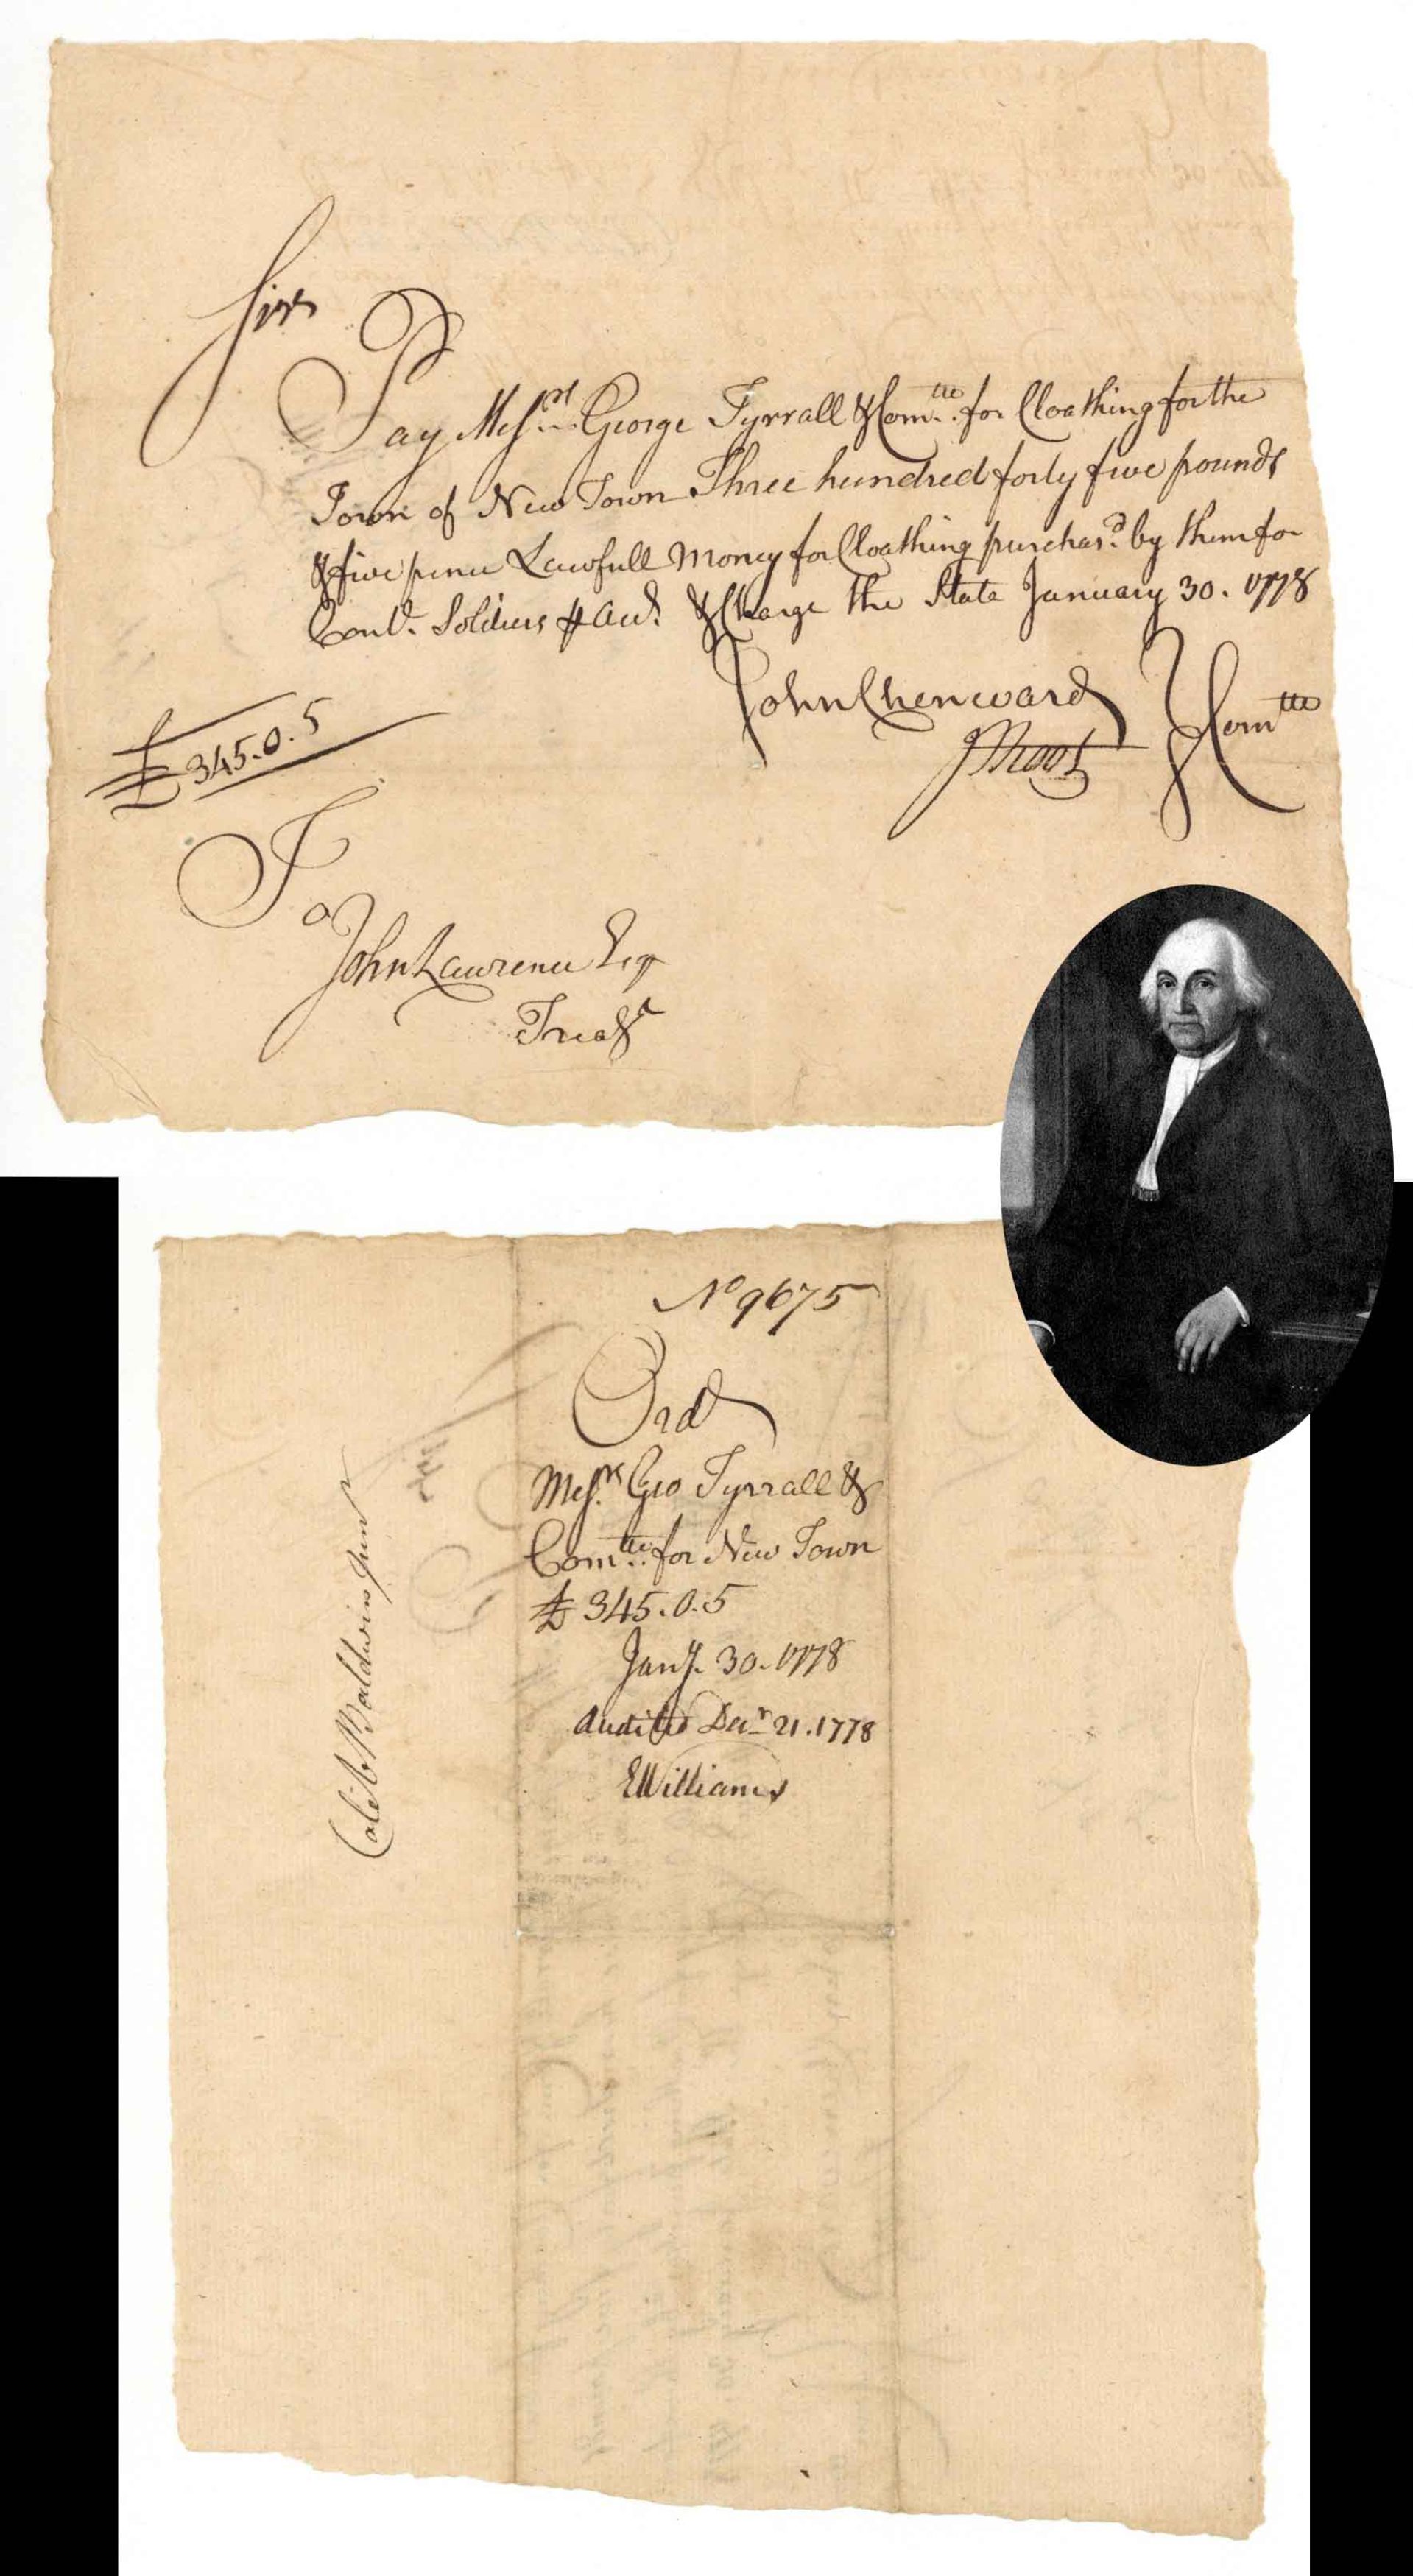 Sir
Pay Messrs. George Tyrrall & Comtte. for Cloathing for the
Town of New Town Three hundred forty five pounds
& five pence Lawfull Money for Cloathing purchasd. by them for
Contl. Soldiers & Charge the State January 30. 1778
John Chenward
JRoot
Comtte
£345.0.5
To
John Lawrence Esq
Treasr
No 9675
Ord
Messrs Geo Tyrrall &
Comtte. for New Town
£345.0.5
Jany. 30. 1778
Audited Decr 21. 1778
EWilliams
Caleb Baldwin Junr